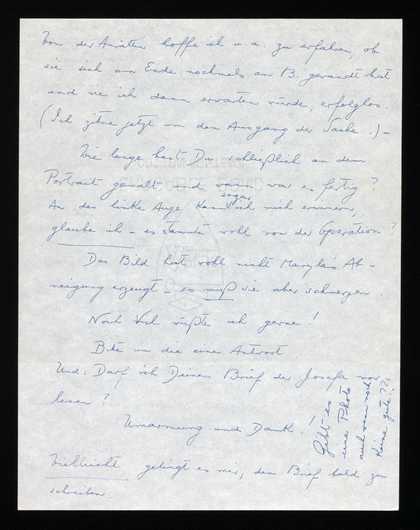 Von der Amitin hoffe ich u. a. zu erfahren, ob
sie sich am Ende nochmals an B. gewandt hat
und wie ich dann erwarten würde, erfolglos.
(Ich jetzt um den Ausgang der Sache!)–
Wie lange hast Du schließlich an dem
Portrait gemalt, und wann war es fertig?
An das linke Auge kann ich mich sogar erinnern,
glaube ich – es wohl von der Operation?
Das Bild hat wohl nicht Ab-
neigung erzeugt – es muß sie aber schmerzen.
Noch viel wüßte ich gerne!
Bitte um die eine Antwort
Und: Darf ich Deinen Brief der Josefa vor-
lesen?
Umarmung und Dank!
Gibt es
eine Photo
auch wenn nicht
keine gute??
Vielleicht gelingt es mir, den Brief bald zu
schreiben